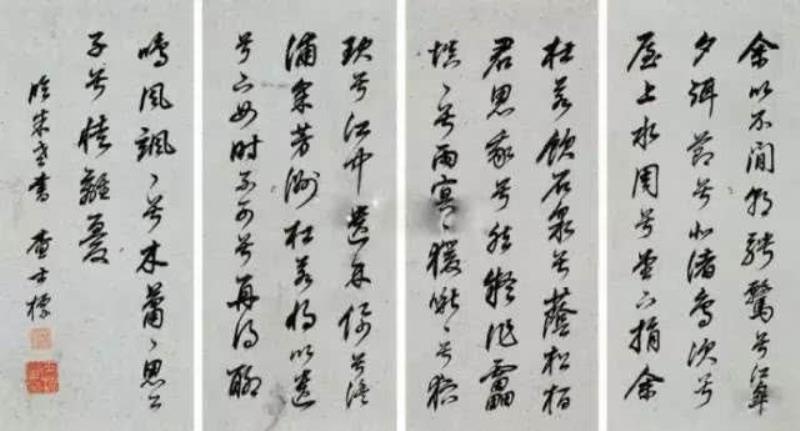 余以不閒朝騁騖兮江皋
夕弭節兮北渚鳥次兮
屋上水周兮堂下捐余
杜若飲石泉兮蔭松柏
君思我兮然疑作靁
填〻兮雨冥〻猨啾〻兮狖
玦兮江中遺余佩兮澧
浦采芳洲杜若將以遺
兮下女時不可兮再得聊
鳴風颯〻兮木蕭〻思公
子兮徒離憂
臨米老書 查士標